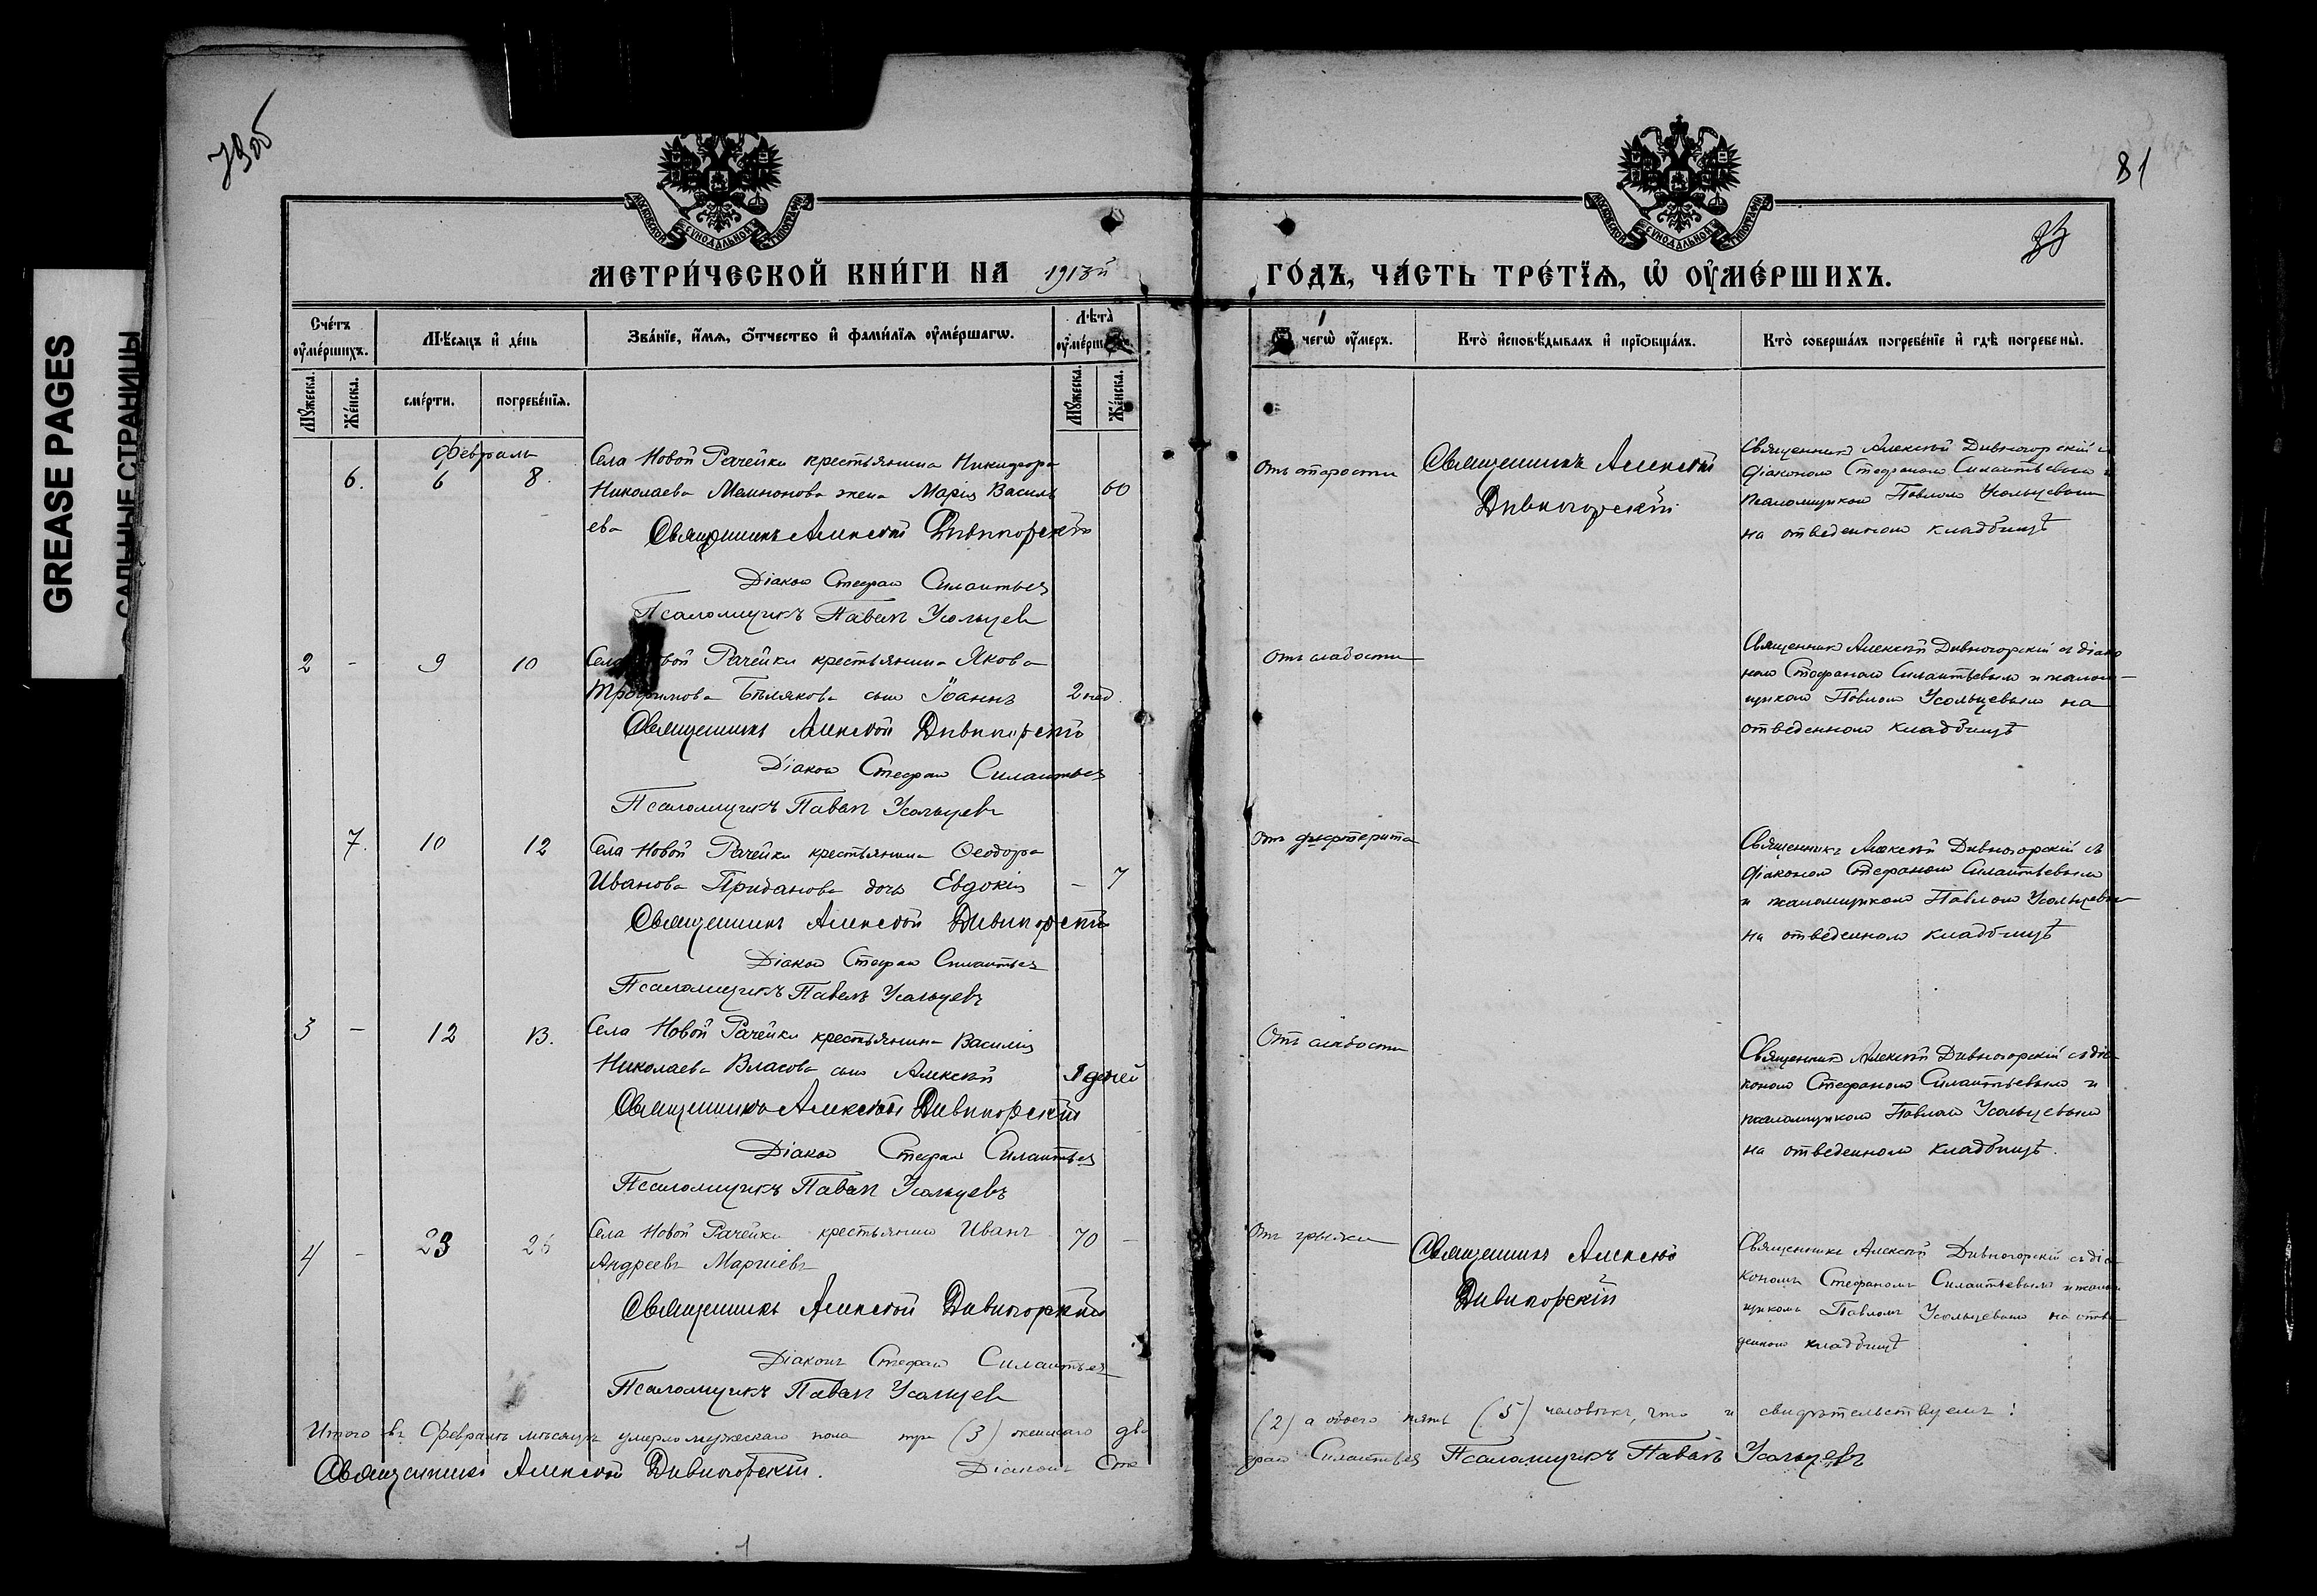 GREASE PAGES
САЛЬНЫЕ СТРАНИЦЫ
79об
81
МОСКОВСКОЙ СУНОДАЛЬНОЙ ТИПОГРАФІИ
МОСКОВСКОЙ СУНОДАЛЬНОЙ ТИПОГРАФІИ
МЕТРИ́ЧЕСКОЙ КНИ́ГИ НА 1913й
ГО́ДЪ, ЧА́СТЬ ТРЕ́ТЇѦ, Ѡ҆ ОУ҆МЕ́РШИХЪ.
Сче́тъ оу҆ме́ршихъ.
Мѣ́сяцъ и҆ де́нь
Зва́нїе, и҆́мѧ, ѻ҆́тчество и҆ фами́лїѧ оу҆ме́ршагѡ.
Лѣ́та оу҆ме́рш
Мꙋ́жеска.
Же́нска.
сме́рти.
погребе́нїѧ.
Мꙋ́жеска.
Же́нска.
чегѡ̀ оу҆́меръ.
Кто̀ и҆сповѣ́дывалъ и҆ прїѡбща́лъ.
Кто̀ соверша́лъ погребе́нїе и҆ гдѣ̀ погребены̀.
Февраль
6. 6 8.
Села Новой Рачейки крестьянина Никифора
Николаева Мамнонова жена Марія Василь
60
ева Священникъ Алексѣй Дивногорскій
Діакон Стефан Силантьев
Псаломщикъ Павел Усольцев
Отъ старости
Священникъ Алексѣй
Дивногорскій
Священник Алексѣй Дивногорскій с
діаконом Стефаном Силантьевым и
псаломщиком Павлом Усольцевым
на отведенном кладбищѣ
2 - 9 10
Села Новой Рачейки крестьянина Якова
Трофимова Бѣлякова сын Іоаннъ
2 нед.
Священникъ Алексѣй Дивногорскій
Діакон Стефан Силантьев
Псаломщикъ Павел Усольцевъ
Отъ слабости
Священник Алексѣй Дивногорскій съ діако
ном Стефаном Силантьевым и псалом-
щиком Павлом Усольцевым на
отведенном кладбищѣ
7. 10 12
Села Новой Рачейки крестьянина Ѳеодора
Иванова Приданова дочь Евдокія
- 7
Священникъ Алексѣй Дивногорскій
Діакон Стефан Силантьев
Псаломщикъ Павелъ Усольцевъ
Отъ дифтерита
Священникъ Алексѣй Дивногорскій съ
діаконом Стефаном Силантьевым
и псаломщиком Павлом Усольцевым
на отведенном кладбищѣ
3 - 12 13.
Села Новой Рачейки крестьянина Василія
Николаева Власова сын Алексѣй
дней
Священникъ Алексѣй Дивногорскій
Діакон Стефан Силантьев
Псаломщикъ Павел Усольцевъ
Отъ слабости
Священник Алексѣй Дивногорскій съ діа-
коном Стефаном Силантьевым и
псаломщиком Павлом Усольцевым
на отведенном кладбищѣ.
4 - 23 25
Села Новой Рачейки крестьянин Иванъ
70 -
Андреевъ
Священникъ Алексѣй Дивногорскій
Діаконъ Стефан Силантьев
Псаломщикъ Павел Усольцев
Отъ грыжи
Священникъ Алексѣй
Дивногорскій
Священникъ Алексѣй Дивногорскій съ діа
кономъ Стефаномъ Силантьевымъ и псалом
щикомъ Павломъ Усольцевым на отве
денном кладбищѣ
Итого въ Февралѣ мѣсяцѣ умерло мужескаго пола три (3) женскаго два
(2) а обоего пять (5) человѣкъ, что и свидѣтельствуемъ!
Священникъ Алексѣй Дивногорскій. Діаконъ Сте
фан Силантьев Псаломщикъ Павелъ Усольцевъ